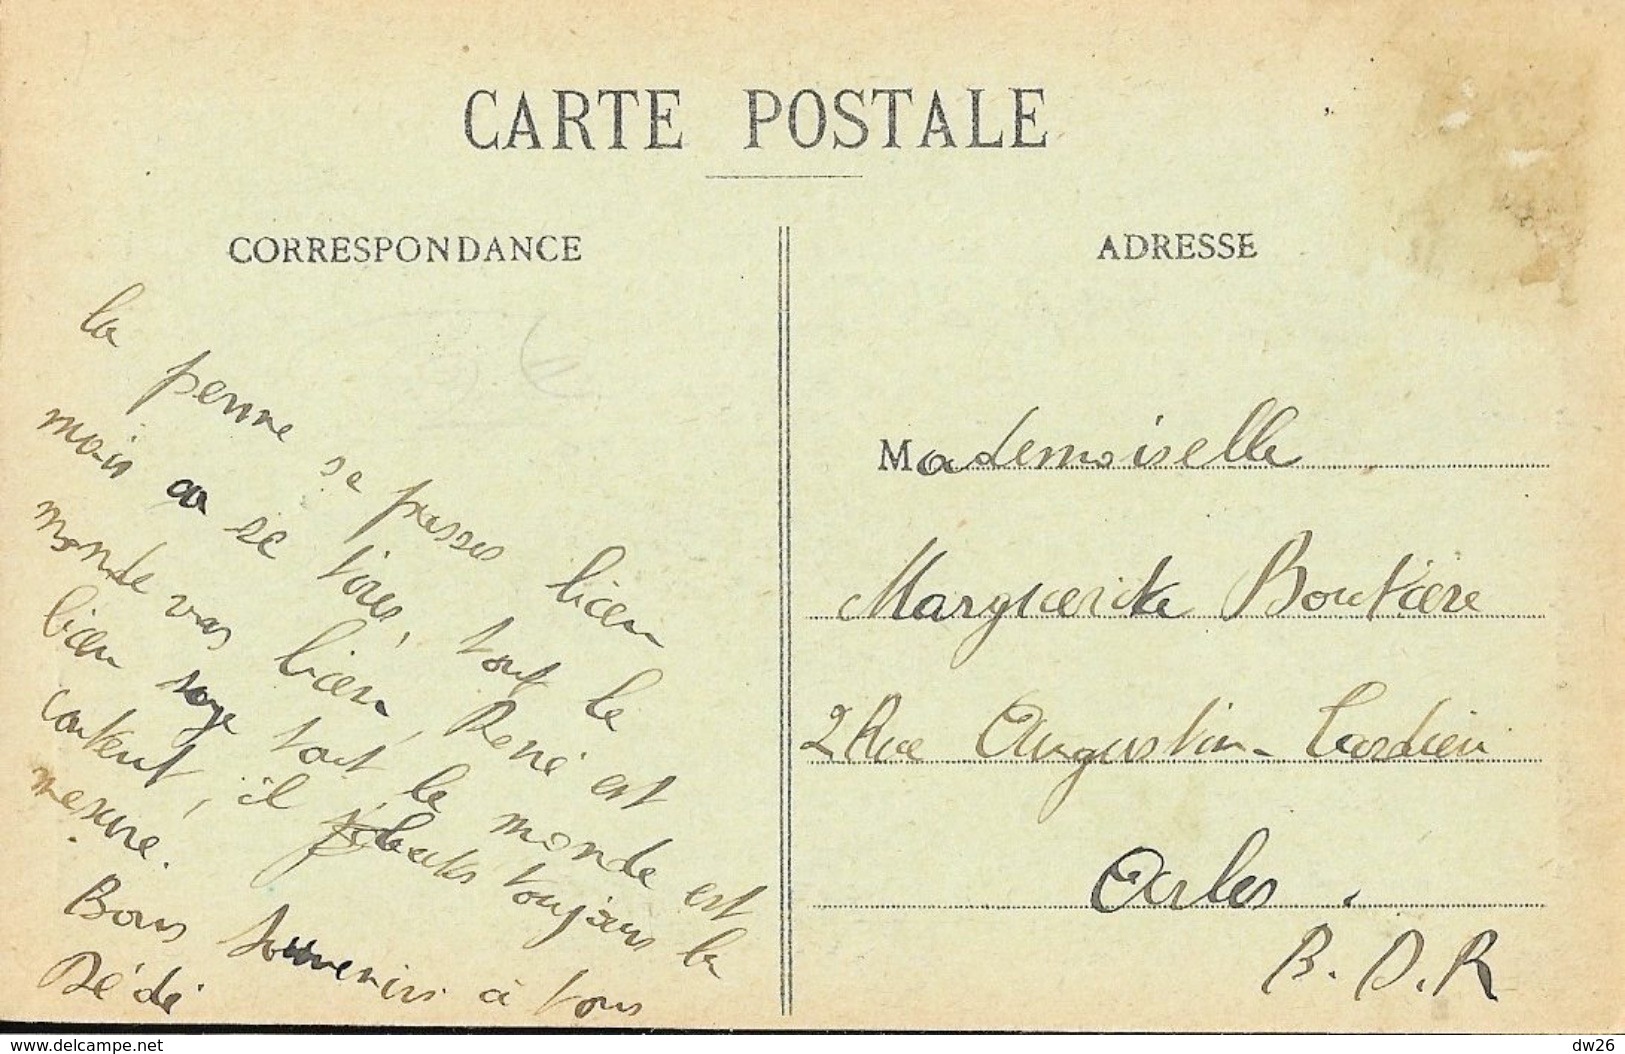 CARTE POSTALE
CORRESPONDANCE
la penne se passes bien
mais ça se tires, tout le
monde vas bien, René est
bien sage tout le monde est
content, il jouentes toujours la
mesure.
Bons souvenirs à tous
Dédé
ADRESSE
Mademoiselle
Marguerite Boutière
2 Rue Augustin-Tardieu
Arles.
B.D.R
www.delcampe.net
dw26